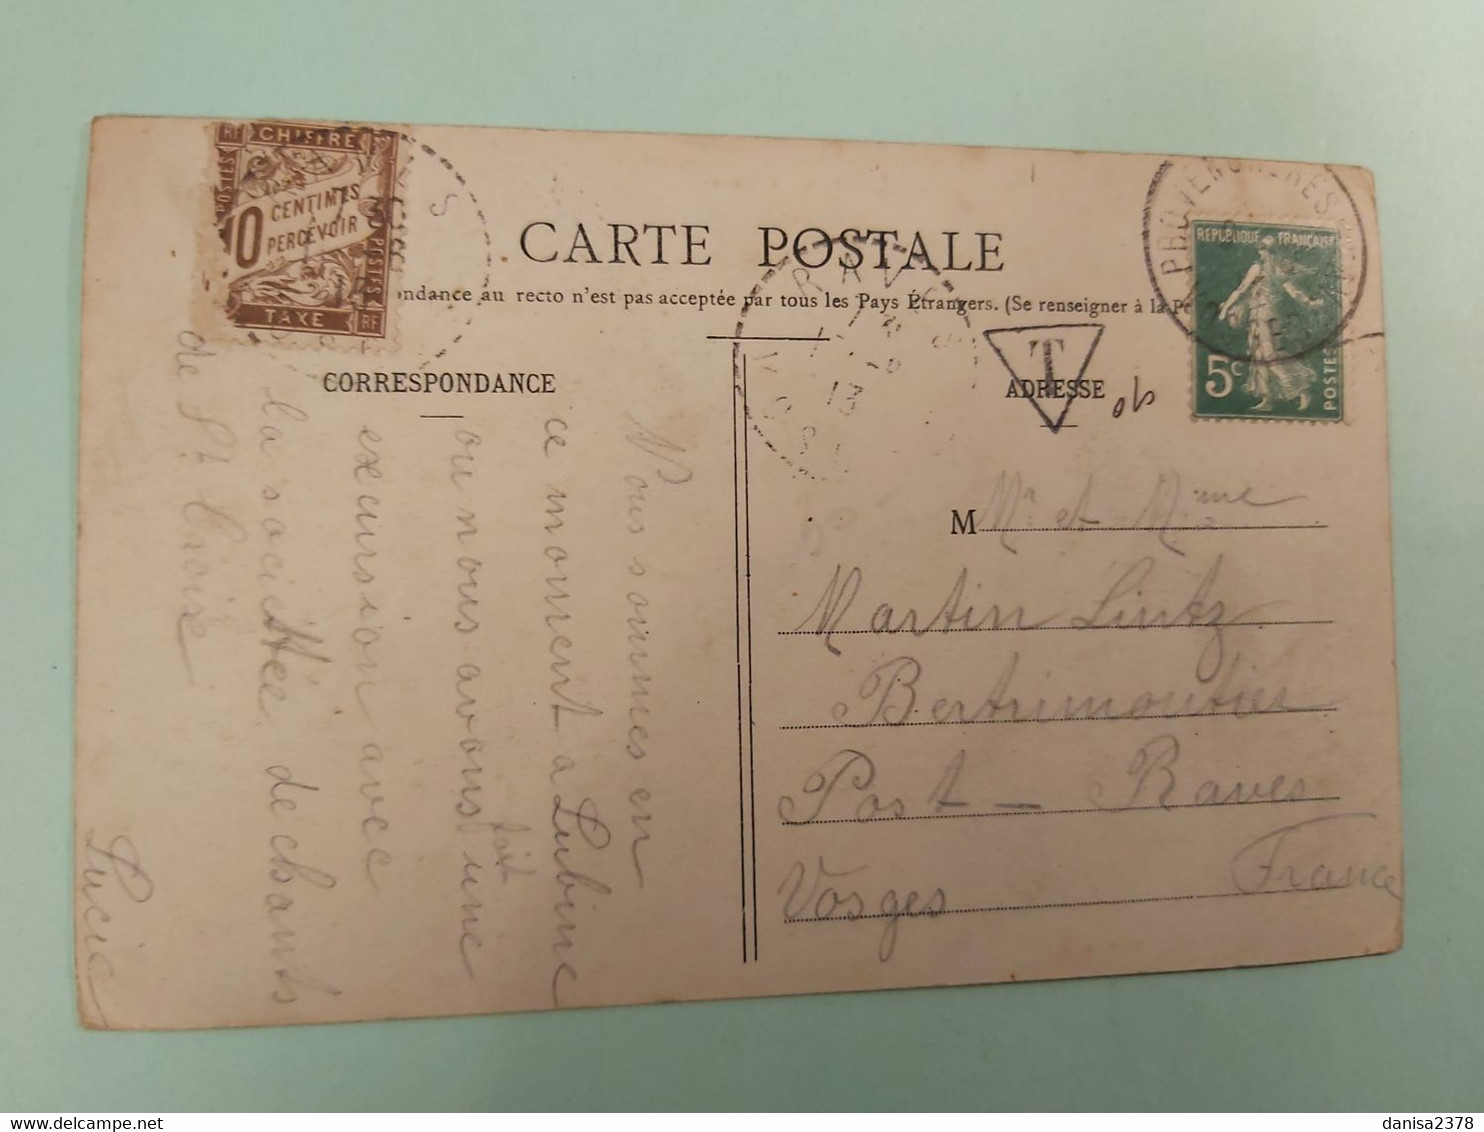 CARTE POSTALE
ndance au recto n'est pas acceptée par tous les Pays Étrangers. (Se renseigner à la P
CORRESPONDANCE
ADRESSE
RF CHIFFRE
POSTES
10 CENTIMES
À
PERCEVOIR
POSTES
TAXE RF
S
RAVES
13
VOSGES
T
10
PROVENCHERES
REPUBLIQUE FRANÇAISE
5c
POSTES
Nous sommes en
ce moment a Lubine
ou nous avons fait une
excursion avec
la sociétée de chants
de St Croix
Lucie
M Mr et Mme
Martin Lintz
Bertrimoutier
Post - Raves
Vosges France
danisa2378